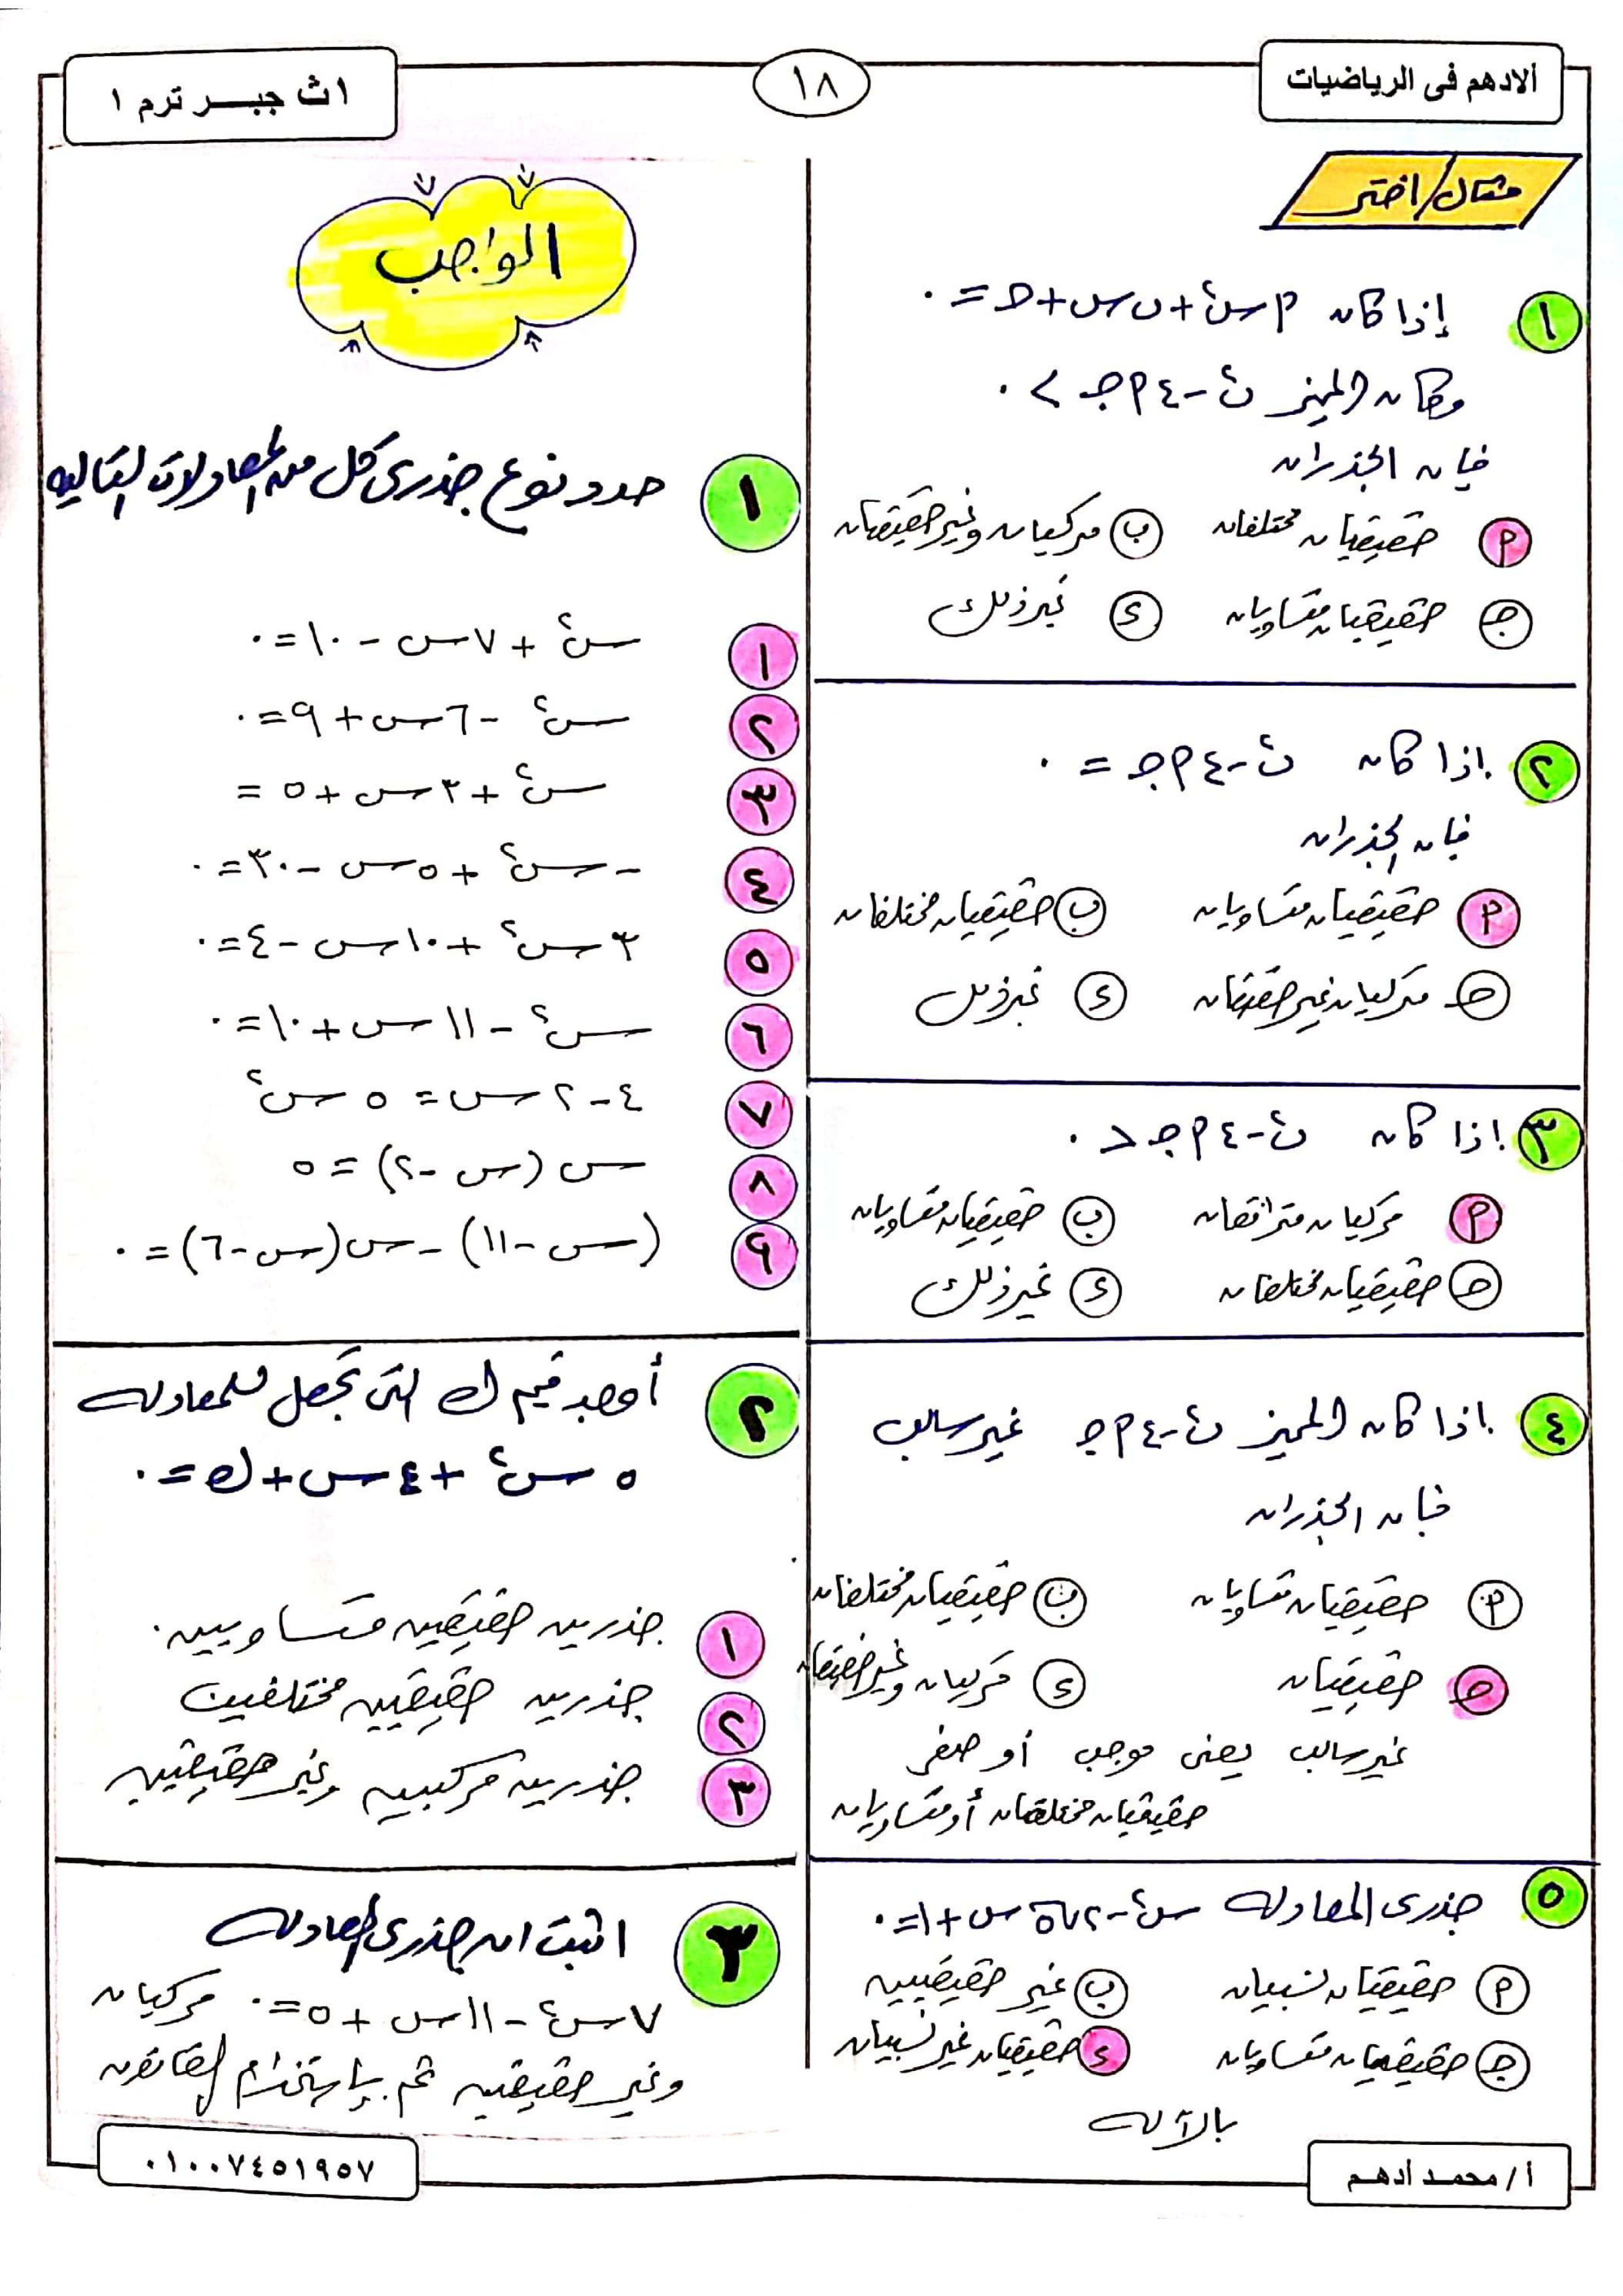 الادهم فى الرياضيات
١٨
١ث جبــر ترم ١
مثال/اختر
١ إذا كان ٢ س٢ + ب س + حـ = ٠
وكان المميز ب٢ - ٤ ٢ جـ > ٠
فإن الجذران
٢ حقيقيان مختلفان ب مركبان وغير حقيقيان
جـ حقيقيان متساويان ء غير ذلك
٢ إذا كان ب٢ - ٤ ٢ جـ = ٠
فإن الجذران
٢ حقيقيان متساويان ب حقيقيان مختلفان
حـ مركبان غير حقيقيان ء غير ذلك
٣ إذا كان ب٢ - ٤ ٢ جـ < ٠
٢ مركبان مترافقان ب حقيقيان متساويان
حـ حقيقيان مختلفان ء غير ذلك
٤ إذا كان المميز ب٢ - ٤ ٢ جـ غير سالب
فإن الجذران
٢ حقيقيان متساويان ب حقيقيان مختلفان
حـ حقيقيان ء مركبان وغير حقيقيان
غير سالب يعنى موجب أو صفر
حقيقيان مختلفان أو متساويان
٥ جذرى المعادلة س٢ - ٢√٥ س + ١ = ٠
٢ حقيقيان نسبيان ب غير حقيقيين
جـ حقيقيان متساويان ء حقيقيان غير نسبيان
بالآلة
الواجب
١ حدد نوع جذرى كل من المعادلات التالية
١ س٢ + ٧س - ١٠ = ٠
٢ س٢ - ٦س + ٩ = ٠
٣ س٢ + ٣س + ٥ =
٤ - س٢ + ٥س - ٣٠ = ٠
٥ ٣س٢ + ١٠س - ٤ = ٠
٦ س٢ - ١١س + ١٠ = ٠
٧ ٤ - ٢س = ٥س٢
٨ س (س - ٢) = ٥
٩ (س - ١١) - س(س - ٦) = ٠
٢ أوجد قيم ك التى تجعل للمعادلة
٥س٢ + ٤س + ك = ٠
١ جذرين حقيقين متساويين.
٢ جذرين حقيقيين مختلفين
٣ جذرين مركبين وغير حقيقيين
٣ اثبت ان جذرى المعادلة
٧س٢ - ١١س + ٥ = ٠ مركبان
وغير حقيقين ثم بإستخدام القانون
أ/ محمـد أدهـم
٠١٠٠٧٤٥١٩٥٧